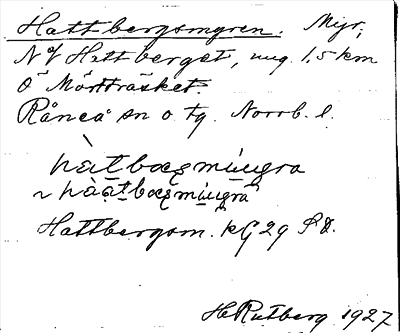 Hattbergsmyren. Myr,
N of Hattberget, ung. 1,5 km
Ö Mörtträsket.
Råneå sn o tg. Norrb. l.
Hattbergsm. kG 29 SO.
H Rutberg 1927